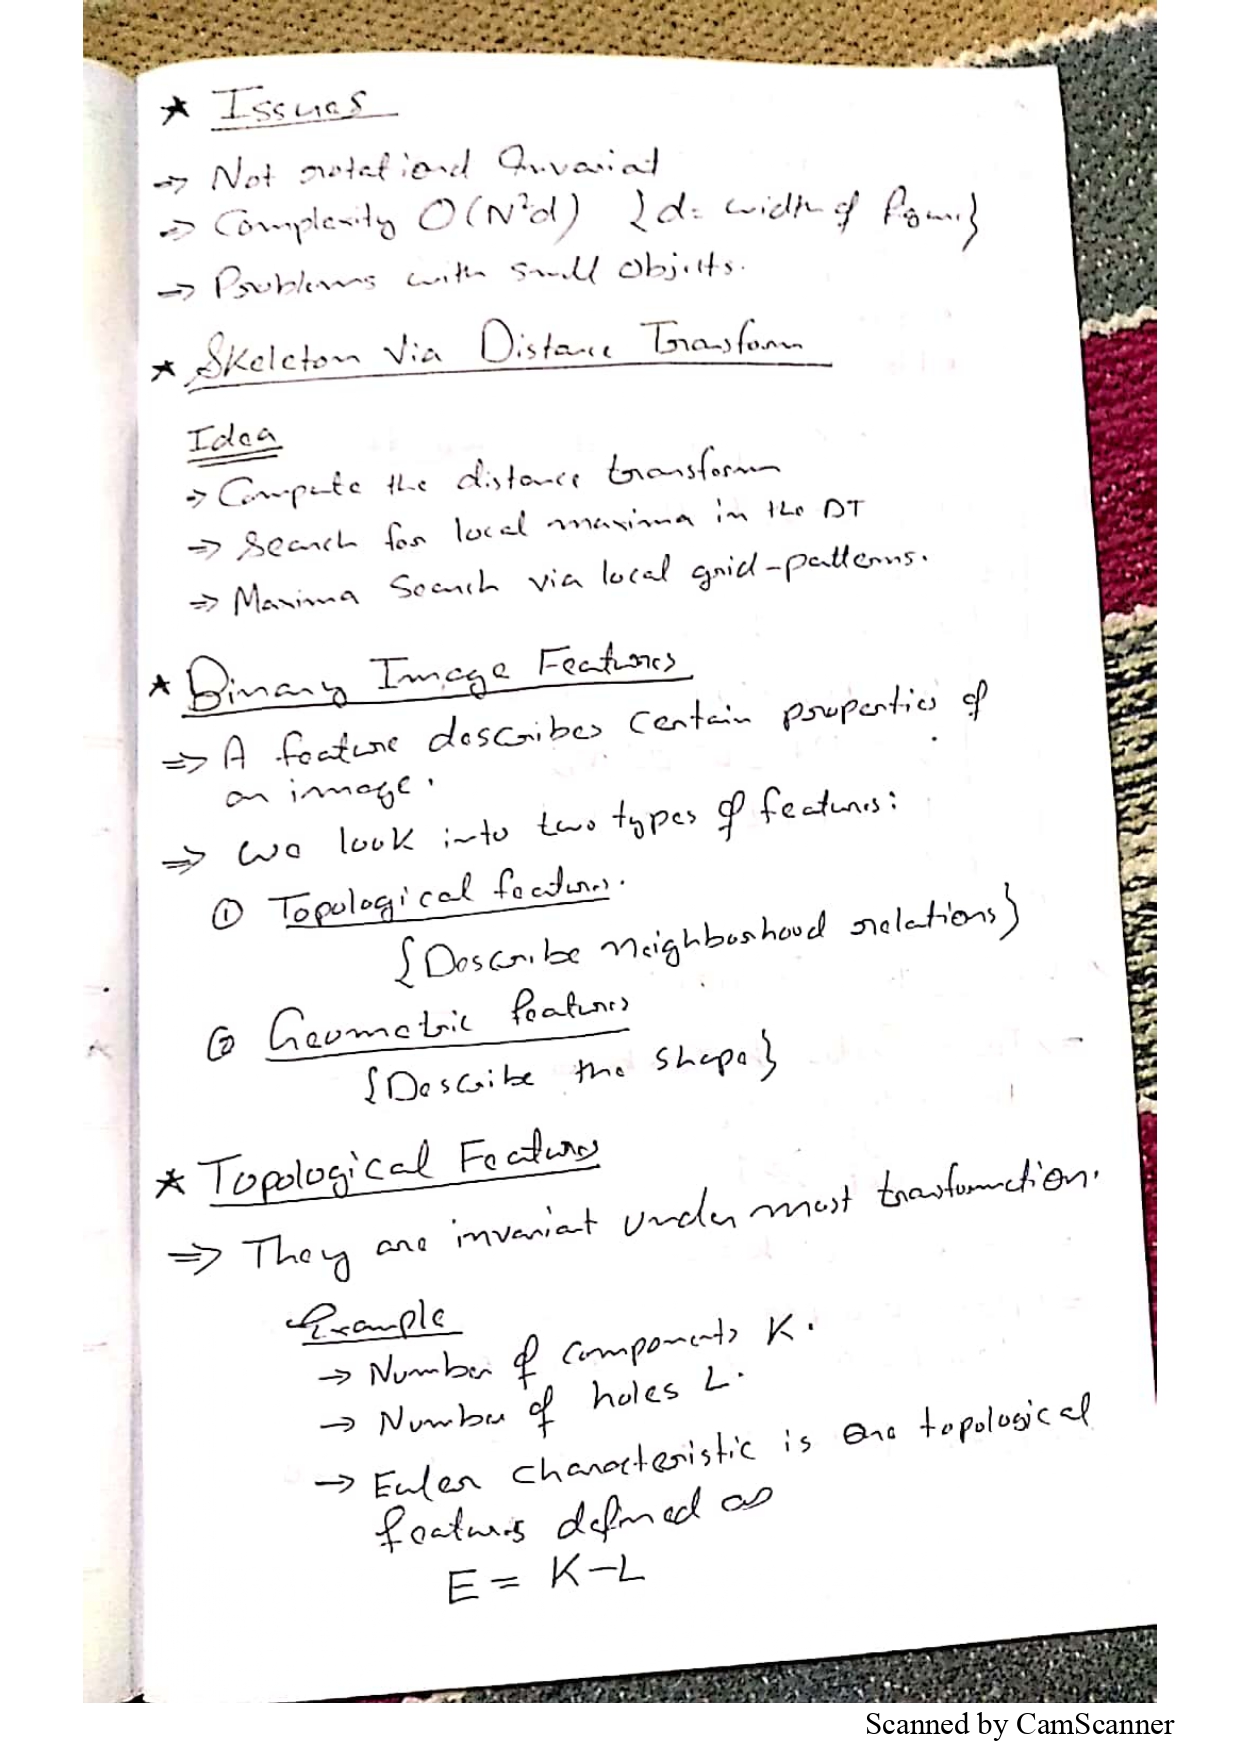 ★ Issues
⇒ Not rotational Invariat
⇒ Complexity O(N²d) {d= width of figure}
⇒ Problems with small objects.
★ Skeleton Via Distance Transform
Idea
⇒ Compute the distance transform
⇒ Search for local maxima in the DT
⇒ Maxima Search via local grid-patterns.
★ Binary Image Features
⇒ A feature describes certain properties of
an image.
⇒ We look into two types of features:
① Topological features.
{Describe neighborhood relations}
② Geometric features
{Describe the shape}
★ Topological Features
⇒ They are invariant under most transformation.
Example
→ Number of components K.
→ Number of holes L.
→ Euler characteristic is one topological
features defined as
E = K-L
Scanned by CamScanner